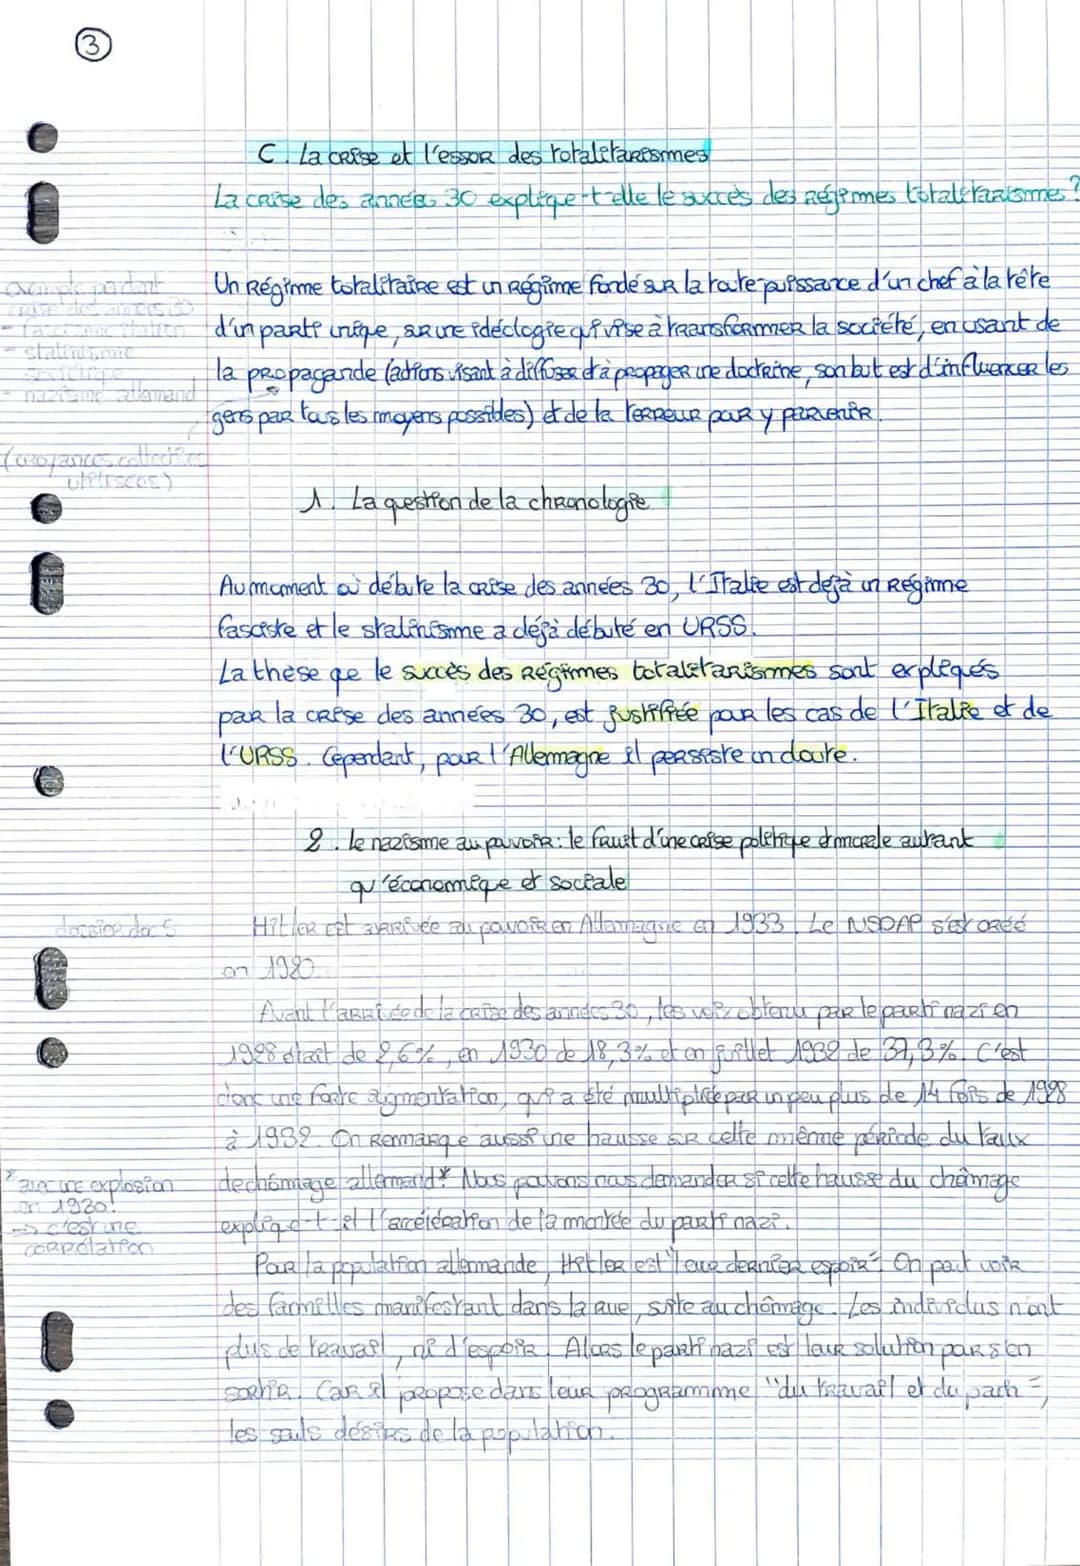 3
C. La crise et l'essor des totalitarismes
La crise des années 30 explique-t-elle le succès des régimes totalitarismes ?
exemple pendant
crise des années 30
- fascisme italien
- stalinisme
soviétique
- nazisme allemand
(croyances collectives
utilisées)
Un régime totalitaire est un régime fondé sur la toute puissance d'un chef à la tête
d'un parti unique, sur une idéologie qui vise à transformer la société, en usant de
la propagande (actions visant à diffuser et à propager une doctrine, son but est d'influencer les
gens par tous les moyens possibles) et de la terreur pour y parvenir.
1. La question de la chronologie
Au moment où débute la crise des années 30, l'Italie est déjà un régime
fasciste et le stalinisme a déjà débuté en URSS.
La thèse que le succès des régimes totalitarismes sont expliqués
par la crise des années 30, est justifiée pour les cas de l'Italie et de
l'URSS. Cependant, pour l'Allemagne il persiste un doute.
2. le nazisme au pouvoir : le fruit d'une crise politique et morale autant
qu'économique et sociale
dossier doc 5
Hitler est arrivée au pouvoir en Allemagne en 1933. Le NSDAP s'est créé
en 1920.
Avant l'arrivée de la crise des années 30, les voix obtenu par le parti nazi en
1928 était de 2,6%, en 1930 de 18,3% et en juillet 1932 de 37,3%. C'est
donc une forte augmentation, qui a été multipliée par un peu plus de 14 fois de 1928
à 1932. On remarque aussi une hausse sur cette même période du taux
de chômage allemand*. Nous pouvons nous demander si cette hausse du chômage
explique-t-il l'accélération de la montée du parti nazi.
* avec une explosion
en 1930!
→ c'est une
corrélation
Pour la population allemande, Hitler est "leur dernier espoir". On peut voir
des familles manifestant dans la rue, suite au chômage. Les individus n'ont
plus de travail, ni d'espoir. Alors le parti nazi est leur solution pour s'en
sortir. Car il propose dans leur programme "du travail et du pain",
les seuls désirs de la population.